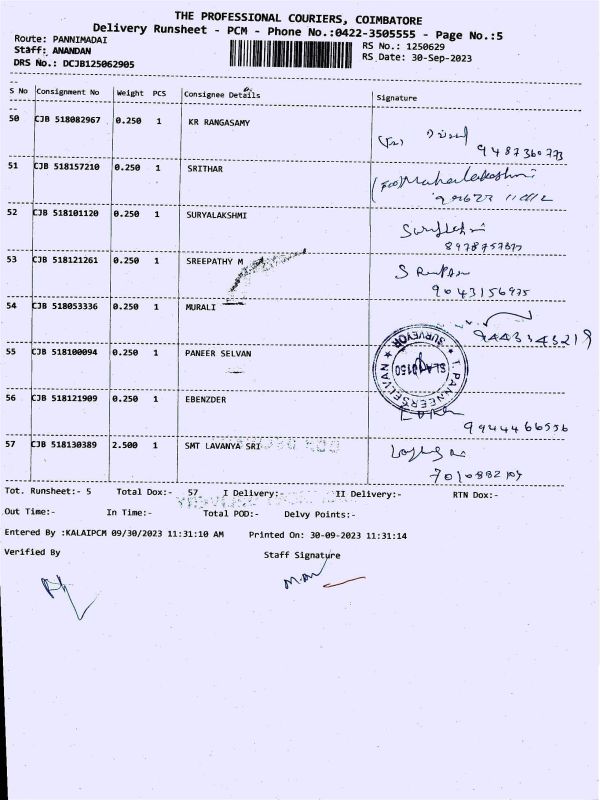 THE PROFESSIONAL COURIERS, COIMBATORE
Delivery Runsheet - PCM - Phone No.:0422-3505555 - Page No.:5
Route: PANNIMADAI
Staff: ANANDAN
DRS No.: DCJB125062905
RS No.: 1250629
RS Date: 30-Sep-2023
S No Consignment No Weight PCS Consignee Details Signature
50 CJB 518082967 0.250 1 KR RANGASAMY
9487360773
51 CJB 518157210 0.250 1 SRITHAR
(for) Mahalakshmi
52 CJB 518101120 0.250 1 SURYALAKSHMI
53 CJB 518121261 0.250 1 SREEPATHY M
9043156975
54 CJB 518053336 0.250 1 MURALI
9443343219
55 CJB 518100094 0.250 1 PANEER SELVAN
* T.PANNEERSELVAN * SURVEYOR
SLA 0150
56 CJB 518121909 0.250 1 EBENZDER
9944466556
57 CJB 518130389 2.500 1 SMT LAVANYA SRI
Tot. Runsheet:- 5 Total Dox:- 57 I Delivery:- II Delivery:- RTN Dox:-
Out Time:- In Time:- Total POD:- Delvy Points:-
Entered By :KALAIPCM 09/30/2023 11:31:10 AM Printed On: 30-09-2023 11:31:14
Verified By Staff Signature